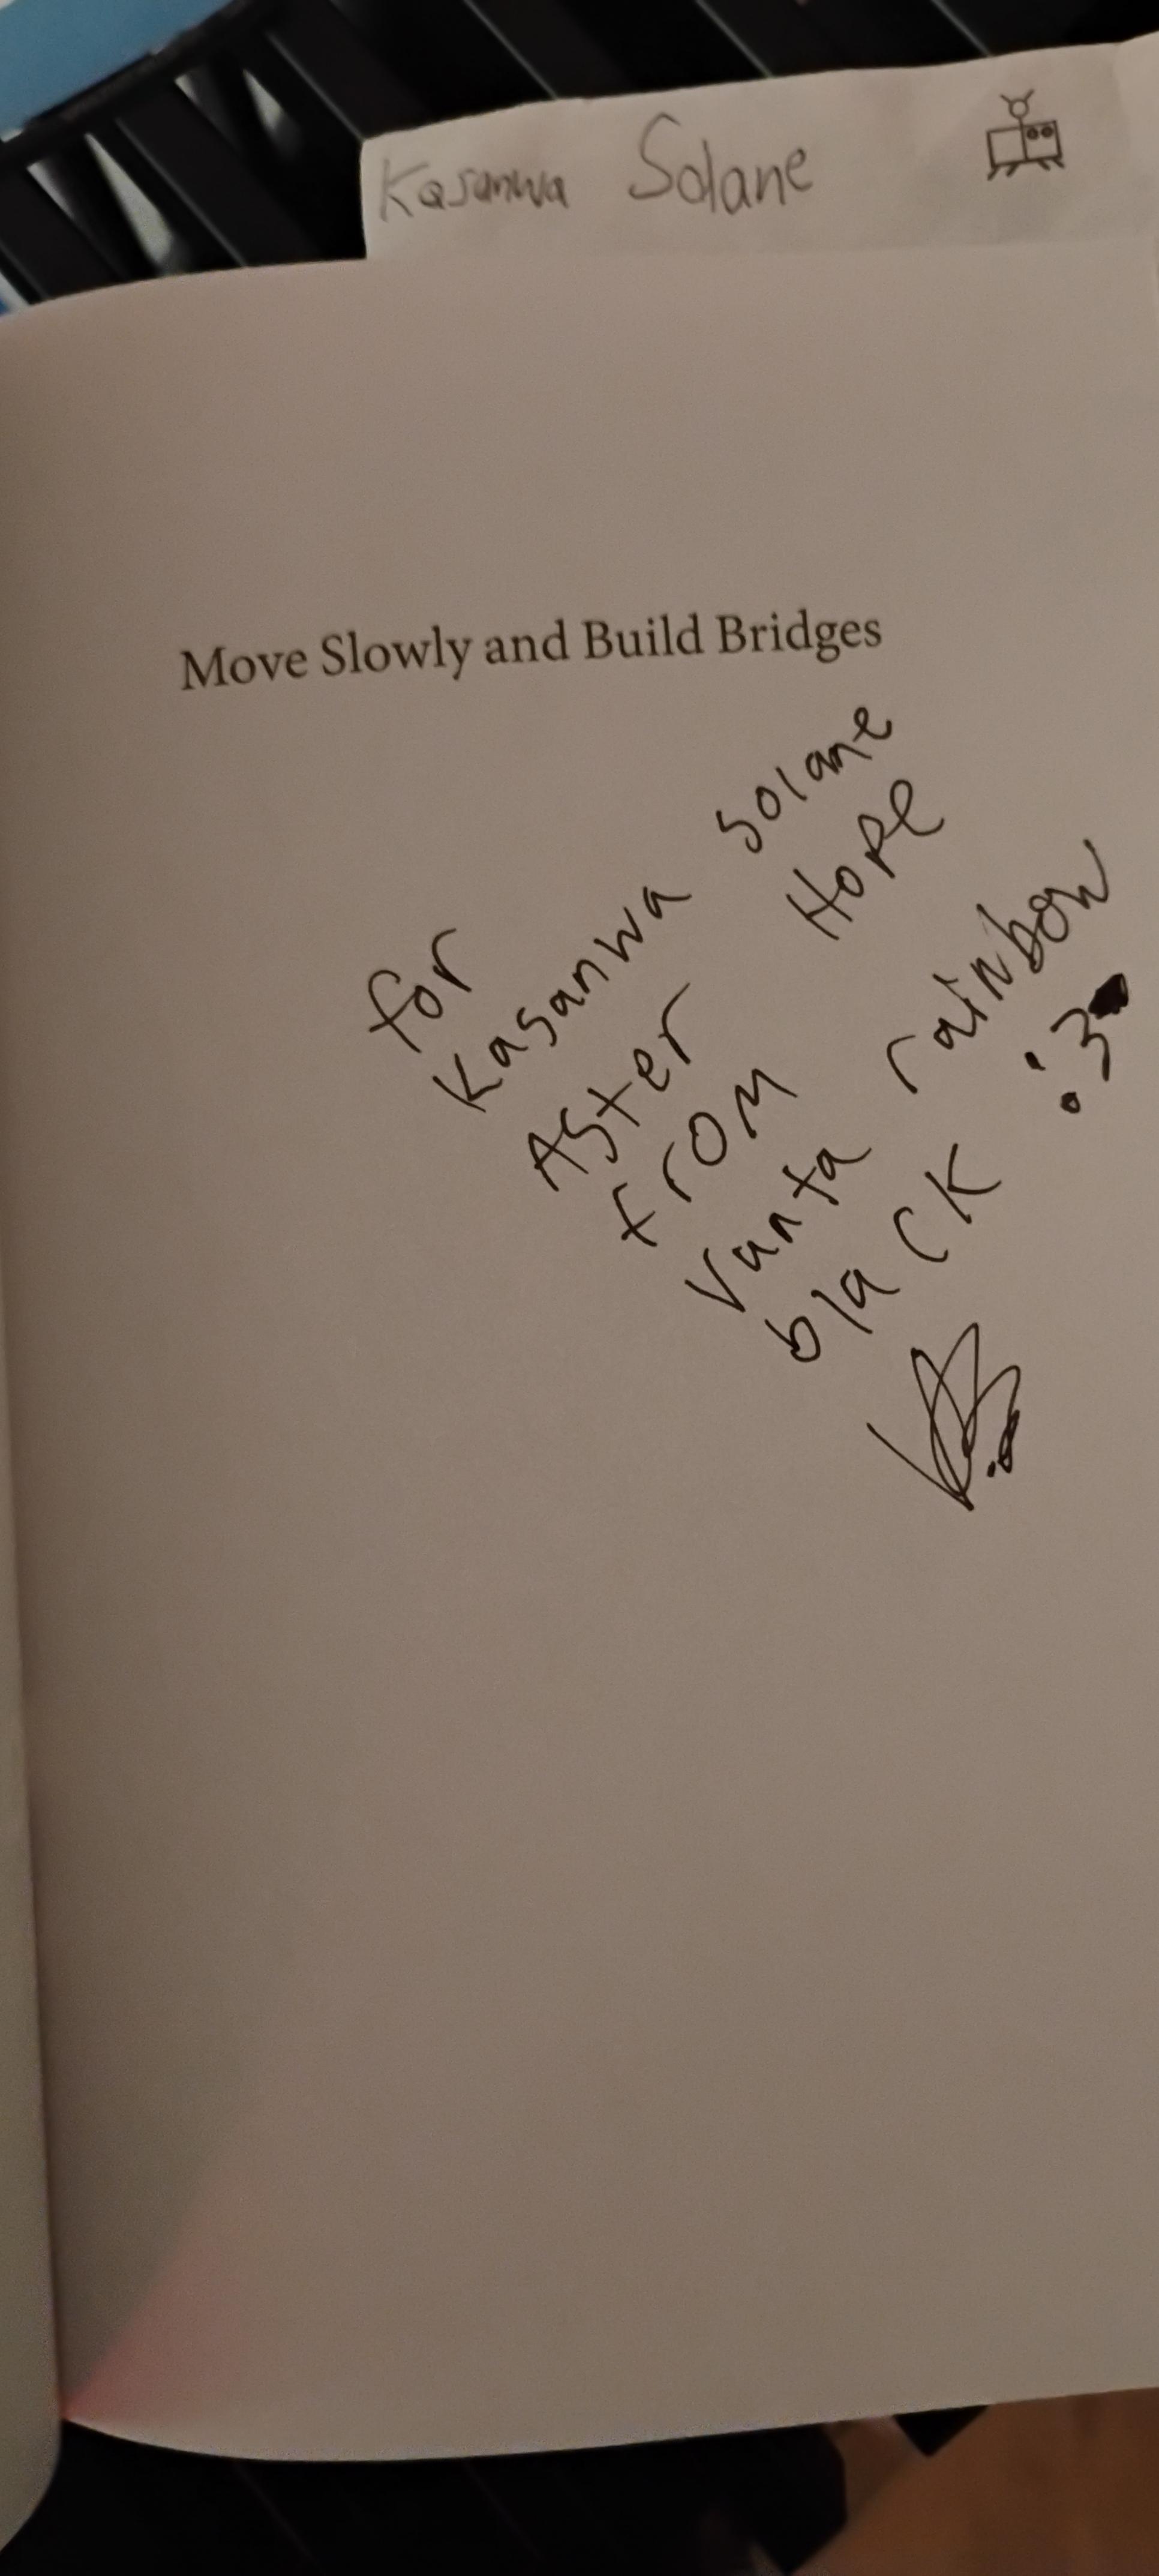 Kasanwa Solane
Move Slowly and Build Bridges
for
Kasanwa Solane
Aster Hope
From
Vanta rainbow
black :3